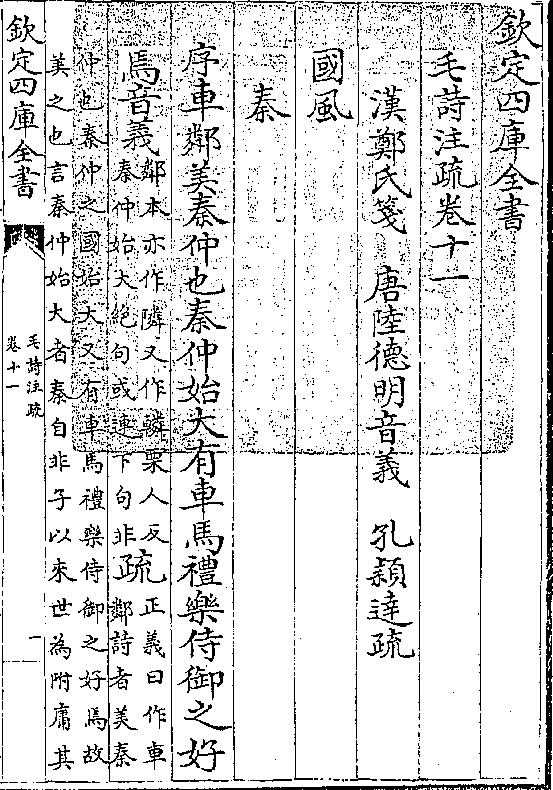 欽定四庫全書
毛詩注疏卷十一
漢鄭氏箋 唐陸德明音義 孔穎達疏
國風
秦
序車鄰美秦仲也秦仲始大有車馬禮樂侍御之好
焉音義鄰本亦作隣又作轔栗人反秦仲始大絶句或連下句非疏正義曰作車鄰詩者美秦
仲也秦仲之國始大又有車馬禮樂侍御之好焉故
美之也言秦仲始大者秦自非子以來世為附庸其
欽定四庫全書
毛詩注疏
卷十一
一